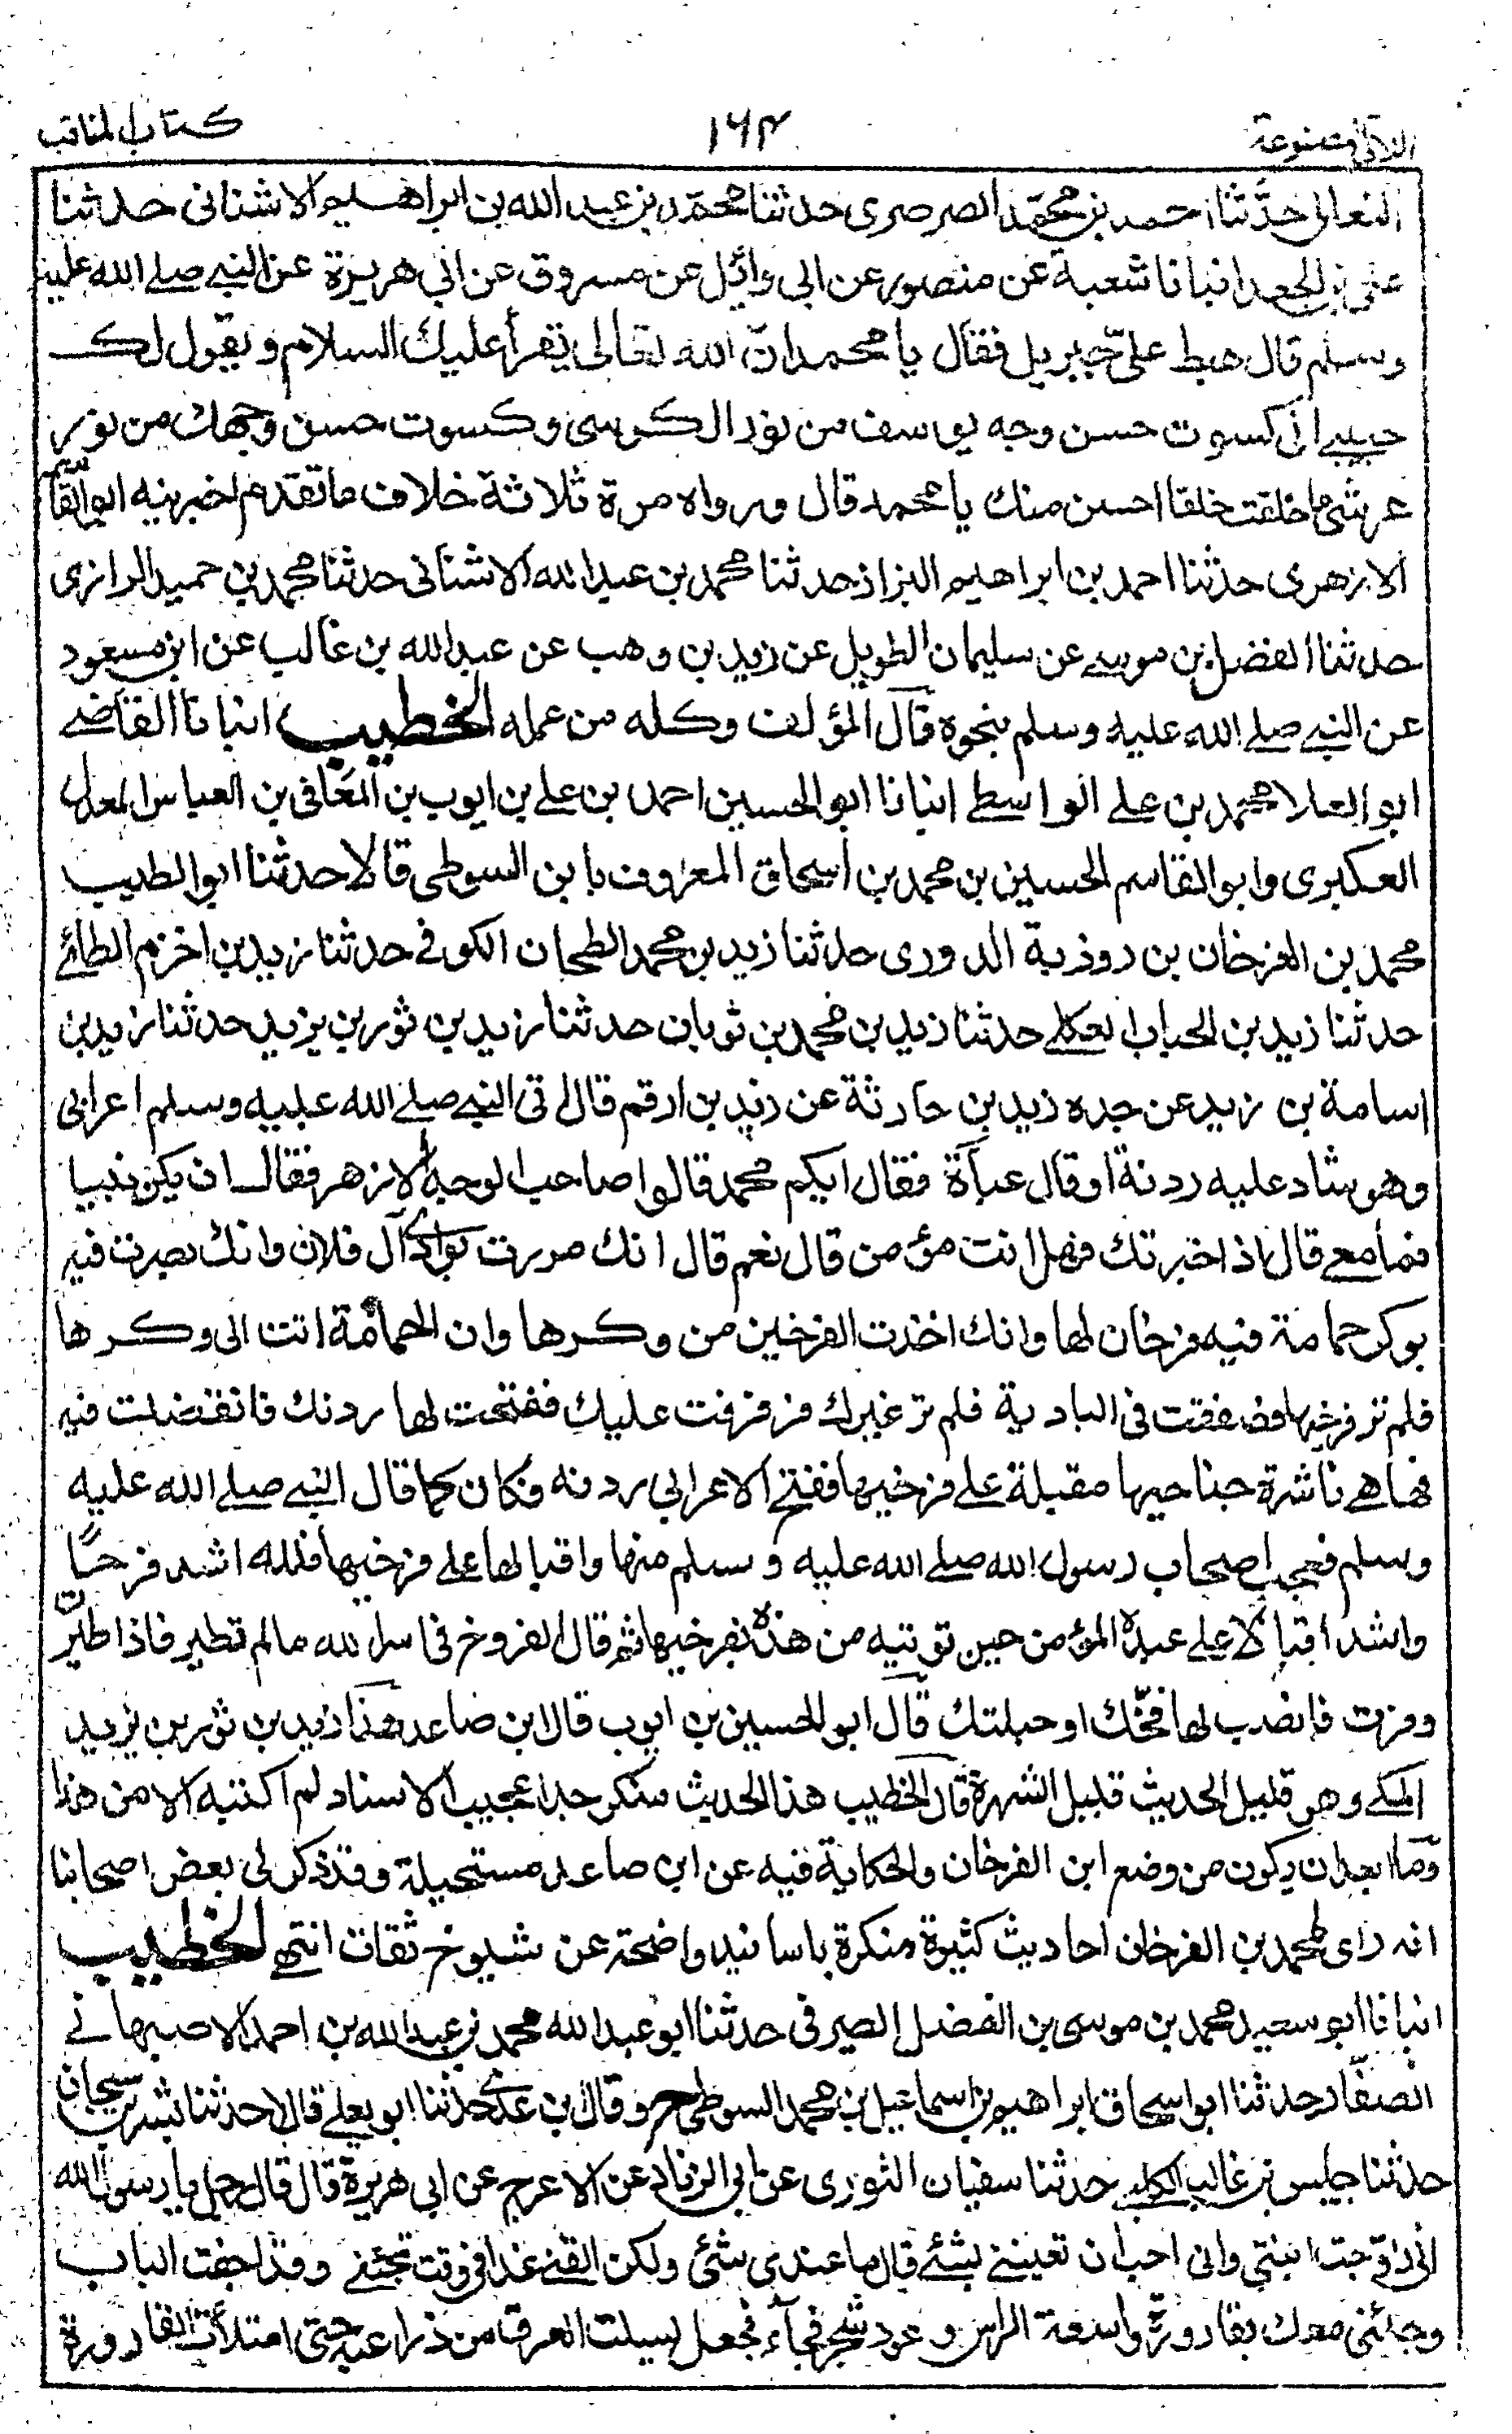 اللآلئ المصنوعة ١٦٣ كتاب المناقب
النعالى حدثنا احمد بن محمد الصرصرى حدثنا محمد بن عبد الله بن ابراهيم الاشنانى حدثنا
على بن الجعد انبانا شعبة عن منصور عن ابى وائل عن مسروق عن ابى هريرة عن النبى صلى الله عليه
وسلم قال هبط علىّ جبريل فقال يا محمد ان الله تعالى يقرأ عليك السلام ويقول لك
حبيبى انى كسوت حسن وجه يوسف من نور الكرسى وكسوت حسن وجهك من نور
عرشى ما خلقت خلقا احسن منك يا محمد قال ورواه مرة ثلاثة خلاف ما تقدم اخبرنيه ابو القاسم
الازهرى حدثنا احمد بن ابراهيم البزاز حدثنا محمد بن عبد الله الاشنانى حدثنا محمد بن حميد الرازى
حدثنا الفضل بن موسى عن سليمان الطويل عن زيد بن وهب عن عبد الله بن غالب عن ابن مسعود
عن النبى صلى الله عليه وسلم بنحوه قال المؤلف وكله من عمله الخطيب انبانا القاضى
ابو العلا محمد بن على الواسطى انبانا ابو الحسين احمد بن على بن ايوب بن المعافى بن العباس المعدل
العكبرى وابو القاسم الحسين بن محمد بن اسحاق المعروف بابن السوطى قالا حدثنا ابو الطيب
محمد بن الفرخان بن روذبة الدورى حدثنا زيد بن محمد الطحان الكوفى حدثنا زيد بن اخزم الطائى
حدثنا زيد بن الحباب العكلى حدثنا زيد بن محمد بن ثوبان حدثنا زيد بن ثور بن يزيد حدثنا زيد بن
اسامة بن زيد عن جده زيد بن حارثة عن زيد بن ارقم قال اتى النبى صلى الله عليه وسلم اعرابى
وهو شاد عليه ردنة او قال عباءة فقال ايكم محمد قالوا صاحب الوجه الازهر فقال ان يكن نبيا
فما معى قال اذ اخبرتك فهل انت مؤمن قال نعم قال انك مررت بوادى آل فلان وانك بصرت فيه
بوكر حمامة فيه فرخان لها وانك اخذت الفرخين من وكرها وان الحمامة اتت الى وكرها
فلم تر فرخيها فصفقت فى البادية فلم تر غيرك فرفرفت عليك ففتحت لها ردنك فانقضت فيه
فها هى ناشرة جناحيها مقبلة على فرخيها ففتح الاعرابى ردنه فكان كما قال النبى صلى الله عليه
وسلم فعجب اصحاب رسول الله صلى الله عليه وسلم منها واقبالها على فرخيها فلله اشد فرحًا
واشد اقبالا على عبده المؤمن حين توبتيه من هذه بفرخيها ثم قال الفروخ فى اسر الله مالم تطير فاذا طيرن
وفرت فانصب لها فخك او حبلتك قال ابو الحسين بن ايوب قال ابن صاعد هذا زيد بن ثور بن يزيد
المكى وهو قليل الحديث قليل الشهرة قال الخطيب هذا الحديث منكر جدا عجيب الاسناد لم اكتبه الا من هذا
وما ابعد ان يكون من وضع ابن الفرخان والحكاية فيه عن ابن صاعد مستحيلة وقد ذكر لى بعض اصحابنا
انه راى لمحمد بن الفرخان احاديث كثيرة منكرة باسانيد واضحة عن شيوخ ثقات انتهى الخطيب
انبانا ابو سعيد محمد بن موسى بن الفضل الصيرفى حدثنا ابو عبد الله محمد بن عبد الله بن احمد الاصبهانى
الصفّار حدثنا ابو اسحاق ابراهيم بن اسماعيل بن محمد السوطى ح وقال بن عدى حدثنا ابو يعلى قالا حدثنا بشر بن سيحان
حدثنا حلبس بن غالب الكلبى حدثنا سفيان الثورى عن ابى الزناد عن الاعرج عن ابى هريرة قال قال رجل يا رسول الله
انى زوجت ابنتى وانى احب ان تعيننى بشئ قال ما عندى شئ ولكن القنى غدا فى وقت تجئنى وقد اجفت الباب
وجئنى معك بقارورة واسعة الراس وعود شجر فجاء فجعل يسلت العرق من ذراعيه حتى امتلأت القارورة